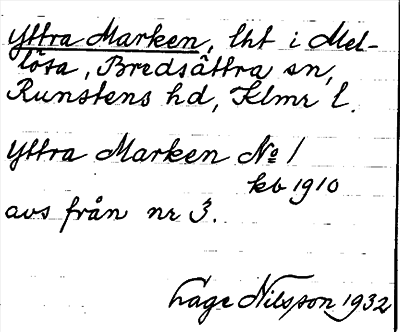 Yttra Marken, lht i Mel-
lösa, Bredsättra sn,
Runstens hd, Klmr l.
Yttra Marken No 1
kb 1910
avs från nr 3.
Lage Nilsson 1932